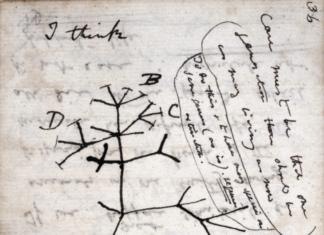 36
I think
Case must be that one
generation then should be
as many living as now
To do this & to have many species in
same genus (as is) requires
extinction.
B
C
D